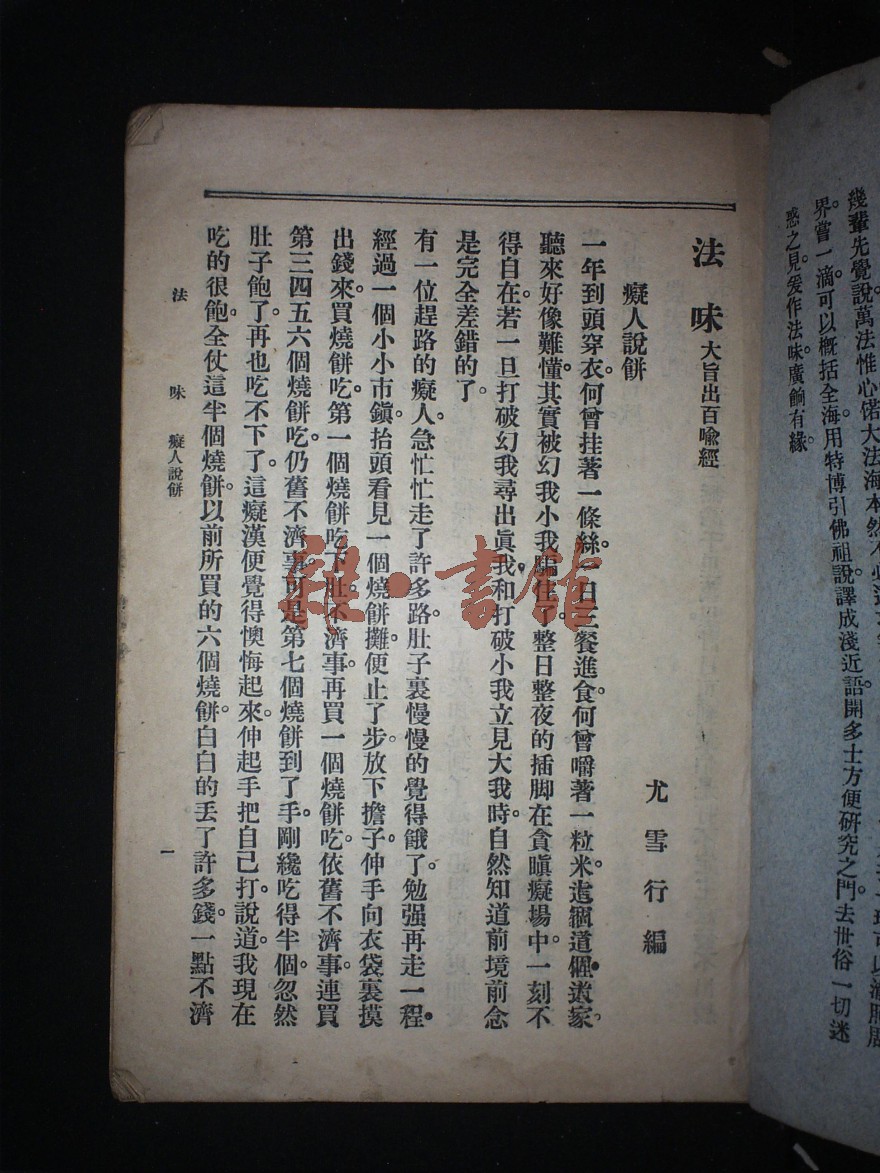 幾輩先覺說萬法惟心偌大法海本然不
界嘗一滴可以概括全海用特博引佛祖說譯成淺近語開多士方便研究之門去世俗一切迷
惑之見爰作法味廣餉有緣。
法味 大旨出百喻經
癡人說餅
尤雪行編
一年到頭穿衣。何曾挂著一條絲。一日三餐進食。何曾嚼著一粒米。這個道
家。
聽來好像難懂。其實被幻我小我騙住了。整日整夜的插脚在貪瞋癡場中。一刻不
得自在。若一旦打破幻我尋出眞我。和打破小我立見大我時。自然知道前境前念
是完全差錯的了。
有一位趕路的癡人。急忙忙走了許多路。肚子裏慢慢的覺得餓了。勉强再走一程。
經過一個小小市鎭。抬頭看見一個燒餅攤。便止了步。放下擔子。伸手向衣袋裏摸
出錢來。買燒餅吃。第一個燒餅吃下肚。不濟事。再買一個燒餅吃。依舊不濟事。連買
第三四五六個燒餅吃。仍舊不濟事。可是第七個燒餅到了手。剛纔吃得半個。忽然
肚子飽了。再也吃不下了。這癡漢便覺得懊悔起來。伸起手把自己打。說道。我現在
吃的很飽。全仗這半個燒餅。以前所買的六個燒餅。白白的丟了許多錢。一點不濟
法味 癡人說餅 一
雜·書館